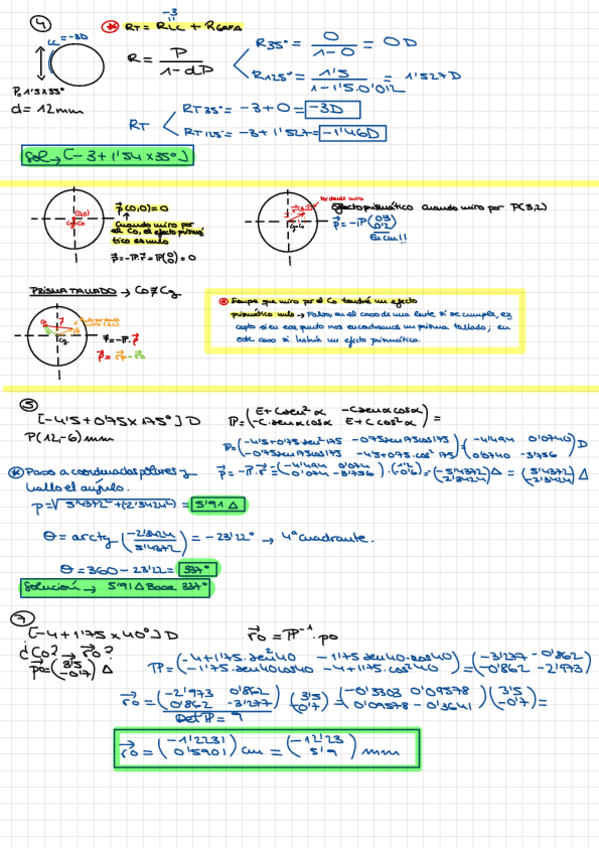 ④
-3
⊛ RT = RLC + RGAFA
LC = -3D
R = P / 1-dP
R35° = 0 / 1-0 = 0D
R125° = 1'5 / 1-1'5·0'012 = 1'527D
P: 1'5x35°
d = 12mm
RT
RT35° = -3+0 = -3D
RT125° = -3+1'527 = -1'46D
Sol → [-3+1'54x35°]
(0,0)
Cg=Co
p(0,0)=0
Cuando miro por
el Co, el efecto prismá
tico es nulo
Efecto prismático cuando miro por P(3,2)
En cm!!
PRISMA TALLADO → Co≠Cg
⊛ Siempre que miro por el Co tendré un efecto
prismático nulo →
en el caso de una lente si se cumple, ex
cepto si en ese punto nos encontramos un prisma tallado; en
este caso si habrá un efecto prismático.
⑤
[-4'5+0'75x175°]D
P(12,-6)mm
P = (E+Csen²α -Csenαcosα / -C·senαcosα E+Ccos²α) =
P = (-4'5+0'75·sen²175 -0'75sen175cos175 / -0'75sen175cos175 -4'5+0'75·cos²175) = (-4'494 0'0740 / 0'0740 -3'756)D
⊛ Paso a coordenadas polares y
hallo el ángulo.
p = -P·r = -(-4'494 0'074 / 0'074 -3'756)·(1'2 / -0'6) = -(-5'4372 / 2'3424)Δ = (5'4372 / -2'3424)Δ
p = √5'4372²+(-2'3424²) = 5'91Δ
θ = arctg(-2'3424 / 5'4372) = -23'22° → 4º cuadrante.
θ = 360-23'22 = 337°
Solución → 5'91Δ Base 337°
⑦
[-4+1'75x40°]D
¿Co? → ro?
po = (3'5 / -0'7)Δ
ro = P⁻¹·po
P = (-4+1'75·sen²40 -1'75sen40·cos40 / -1'75·sen40cos40 -4+1'75·cos²40) = (-3'237 -0'862 / -0'862 -2'973)
ro = (-2'973 0'862 / 0'862 -3'237) / Det P = 9 (3'5 / -0'7) = (-0'3303 0'09578 / 0'09578 -0'3641)(3'5 / -0'7) =
ro = (-1'2231 / 0'5901)cm = (-12'23 / 5'9) mm